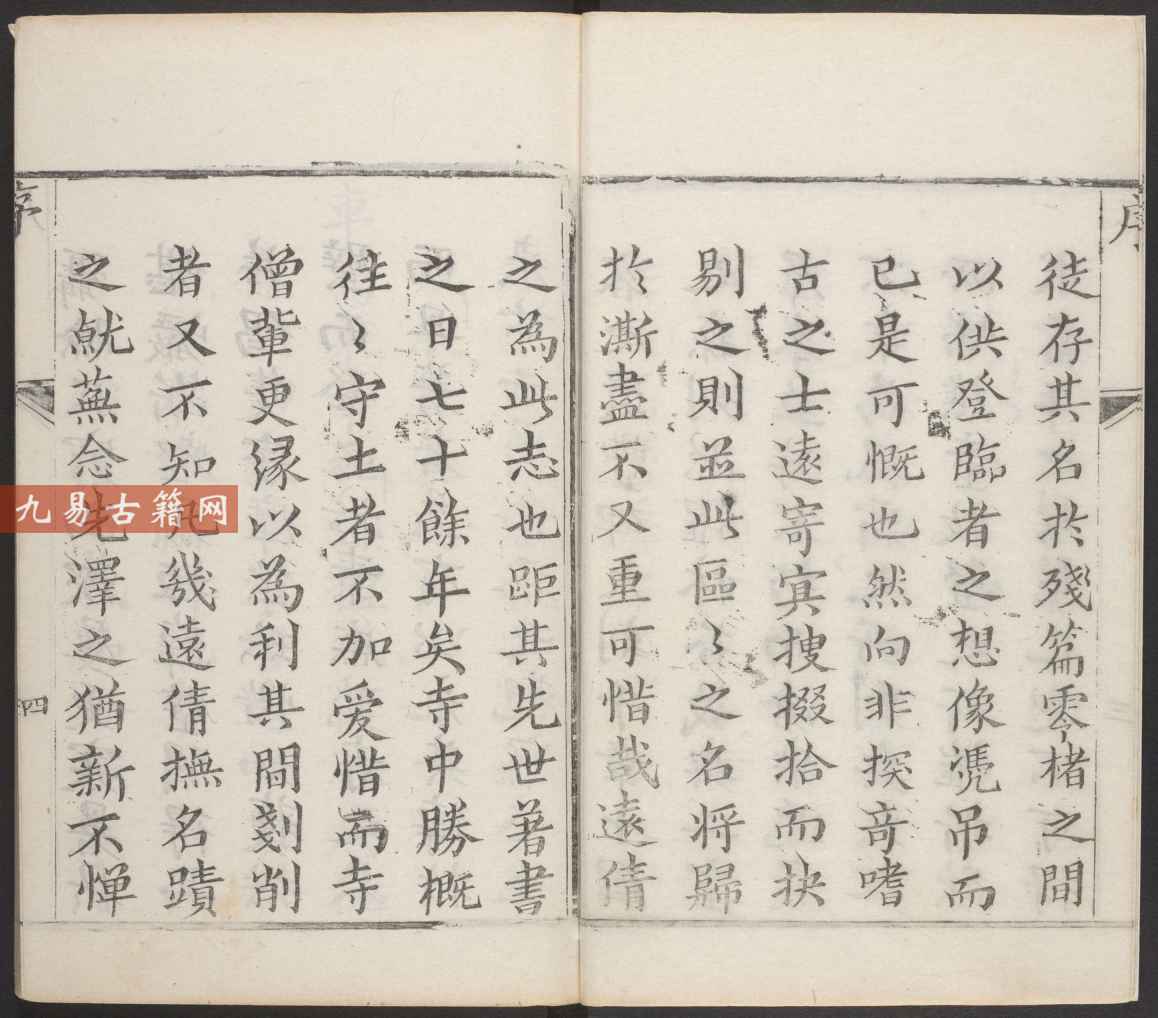 序
徒存其名扵殘篇零楮之間
以供登臨者之想像憑吊而
已是可慨也然向非探竒嗜
古之士遠寄冥搜掇拾而抉
剔之則並此區〻之名将歸
扵澌盡不又重可惜哉遠倩
之為此志也距其先世著書
之日七十餘年矣寺中勝概
徃〻守土者不加愛惜而寺
僧軰更縁以為利其間剗削
者又不知凡幾遠倩撫名蹟
之就蕪念先澤之猶新不憚
序
四
九易古籍网